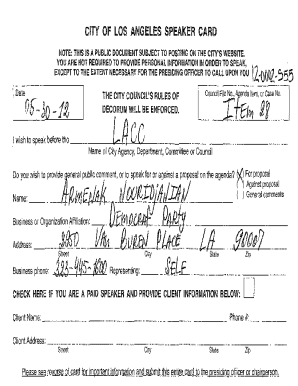 CITY OF LOS ANGELES SPEAKER CARD
NOTE: THIS IS A PUBLIC DOCUMENT SUBJECT TO POSTING ON THE CITY'S WEBSITE.
YOU ARE NOT REQUIRED TO PROVIDE PERSONAL INFORMATION IN ORDER TO SPEAK,
EXCEPT TO THE EXTENT NECESSARY FOR THE PRESIDING OFFICER TO CALL UPON YOU
12-0002-S55
Date
05-30-12
THE CITY COUNCIL'S RULES OF
DECORUM WILL BE ENFORCED.
Council File No., Agenda Item, or Case No.
ITEM 28
I wish to speak before the
LACC
Name of City Agency, Department, Committee or Council
Do you wish to provide general public comment, or to speak for or against a proposal on the agenda?
For proposal
Against proposal
General comments
Name: ARMENAK NOORIDJANIAN
Business or Organization Affiliation: DEMOCRAT PARTY
Address: 3850 VAN BUREN PLACE LA 90007
Street City State Zip
Business phone: 323-445-1800 Representing: SELF
CHECK HERE IF YOU ARE A PAID SPEAKER AND PROVIDE CLIENT INFORMATION BELOW:
Client Name: Phone #:
Client Address:
Street City State Zip
Please see reverse of card for important information and submit this entire card to the presiding officer or chairperson.